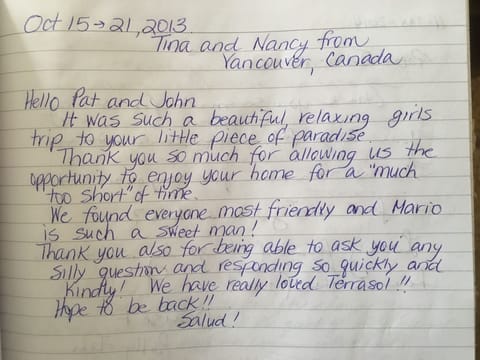 Oct 15→21, 2013
Tina and Nancy from
Vancouver, Canada
Hello Pat and John
It was such a beautiful, relaxing girls
trip to your little piece of paradise
Thank you so much for allowing us the
opportunity to enjoy your home for a "much
too short" of time.
We found everyone most friendly and Mario
is such a sweet man!
Thank you also for being able to ask you any
silly question and responding so quickly and
kindly! We have really loved Terrasol!!
Hope to be back!!
Salud!